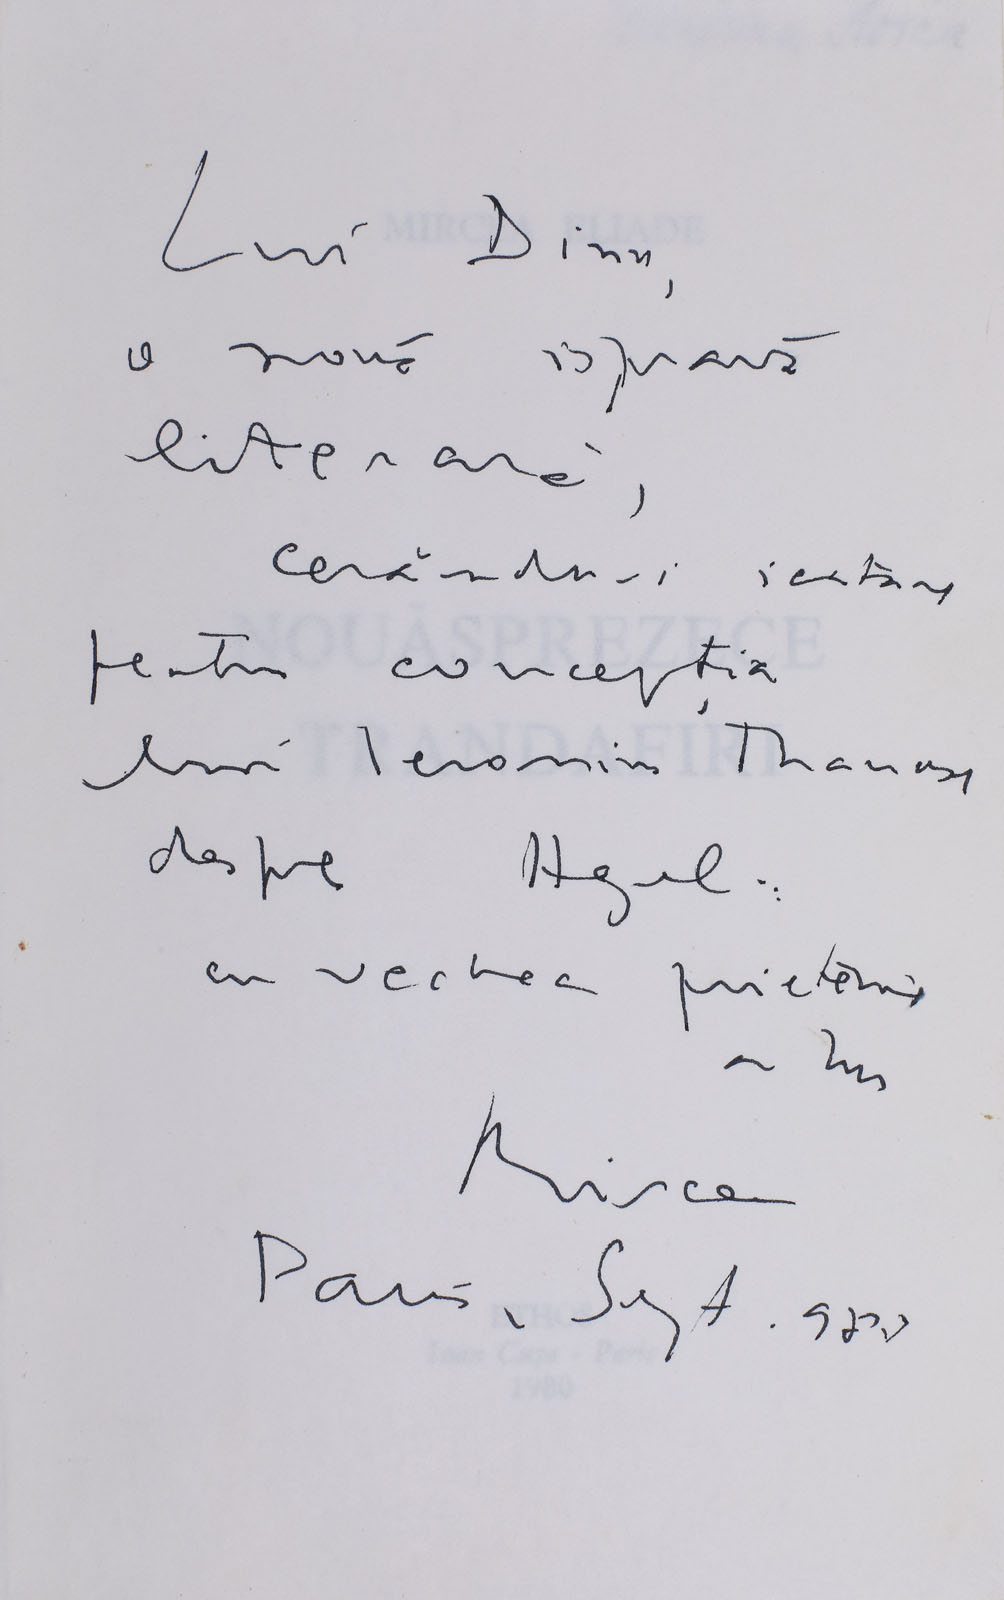 Lui Dinu,
o nouă ispravă
literară,
cerându-i iertare
pentru concepția
lui Ieronim Thanase
despre Hegel...
cu vechea prietenie
a lui
Mircea
Paris, Sept. 980
MIRCEA ELIADE
NOUĂSPREZECE
TRANDAFIRI
ETHOS
Ioan Cușa - Paris
1980